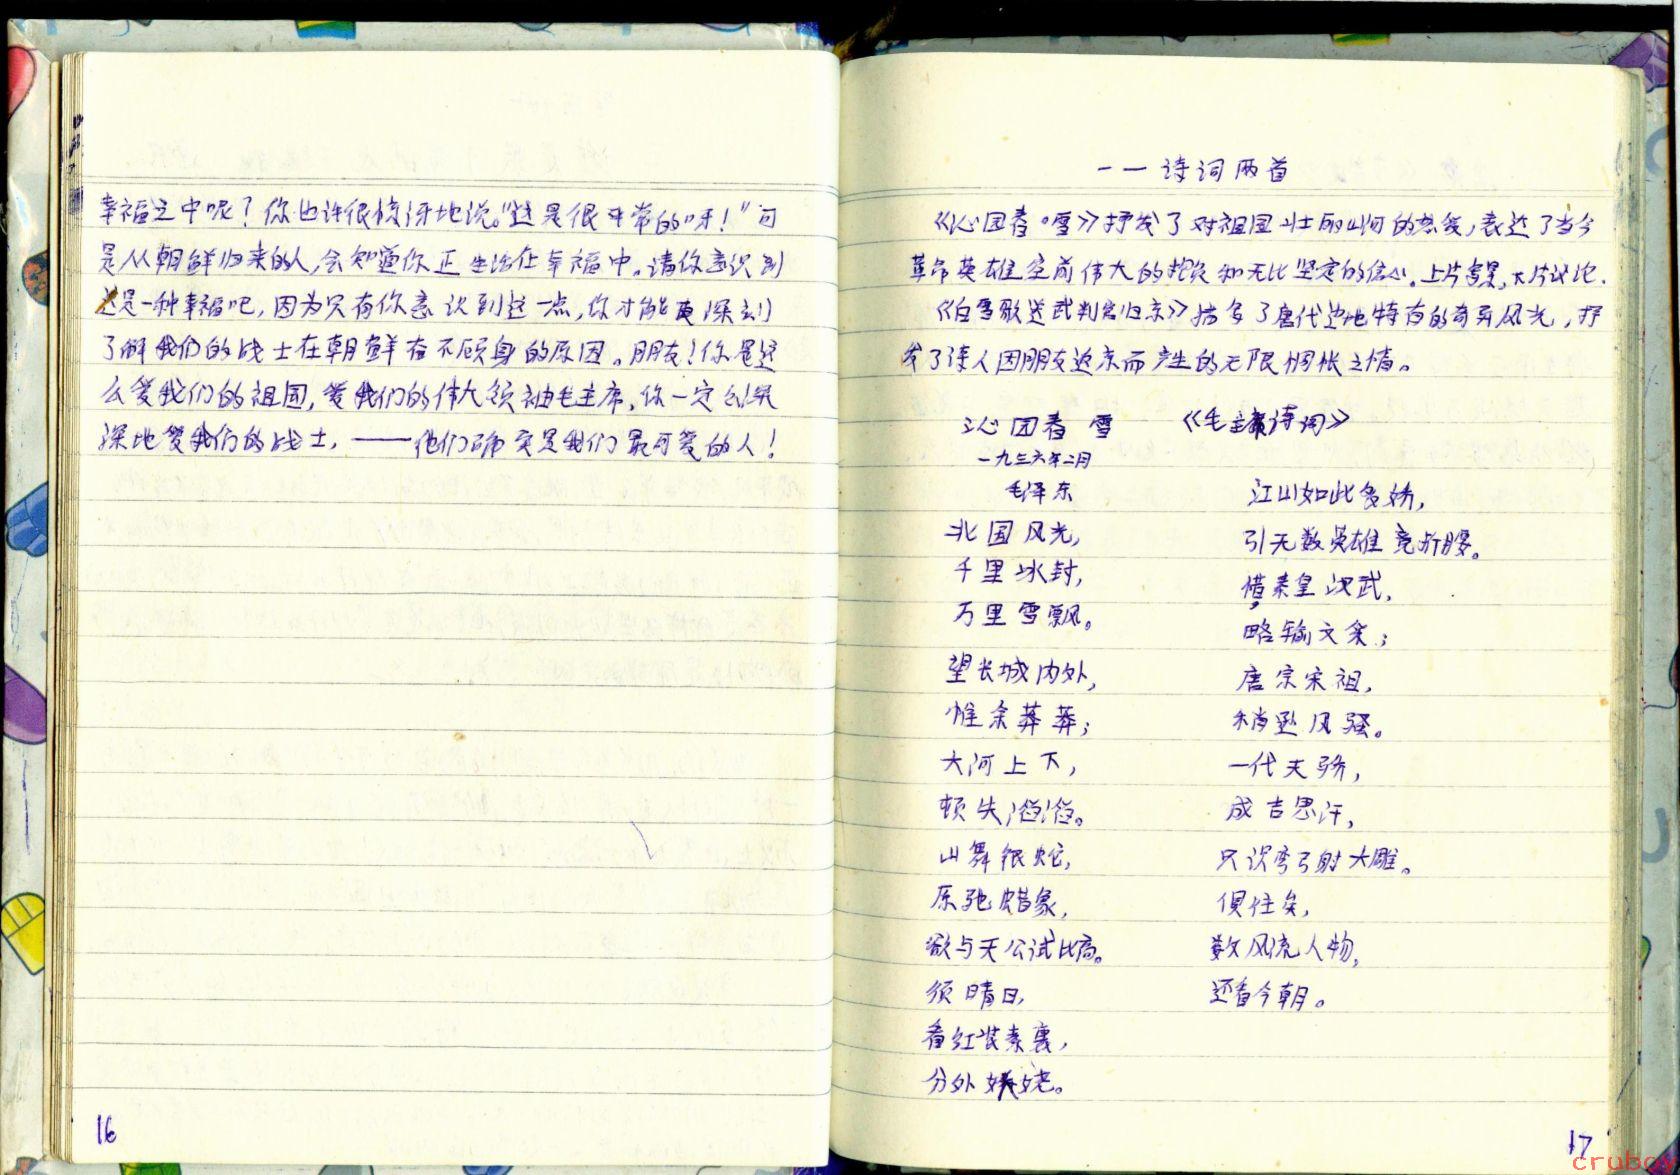 幸福之中呢？你也许很惊讶地说。“这是很平常的呀！”可
是从朝鲜归来的人，会知道你正生活在幸福中。请你意识到
这是一种幸福吧，因为只有你意识到这一点，你才能更深刻
了解我们的战士在朝鲜奋不顾身的原因。朋友！你是这
么爱我们的祖国，爱我们的伟大领袖毛主席，你一定会深
深地爱我们的战士，——他们确实是我们最可爱的人！
16
一一 诗词两首
《沁园春·雪》抒发了对祖国壮丽山河的热爱，表达了当今
革命英雄空前伟大的抱负和无比坚定的信心。上片写景，下片议论.
《白雪歌送武判官归京》描写了唐代边地特有的奇异风光，抒
发了诗人因朋友返京而产生的无限惆怅之情。
沁园春 雪 《毛主席诗词》
一九三六年二月
毛泽东
北国风光，
千里冰封，
万里雪飘。
望长城内外，
惟余莽莽；
大河上下，
顿失滔滔。
山舞银蛇，
原驰蜡象，
欲与天公试比高。
须晴日，
看红装素裹，
分外妖娆。
江山如此多娇，
引无数英雄竞折腰。
惜秦皇汉武，
略输文采；
唐宗宋祖，
稍逊风骚。
一代天骄，
成吉思汗，
只识弯弓射大雕。
俱往矣，
数风流人物，
还看今朝。
17